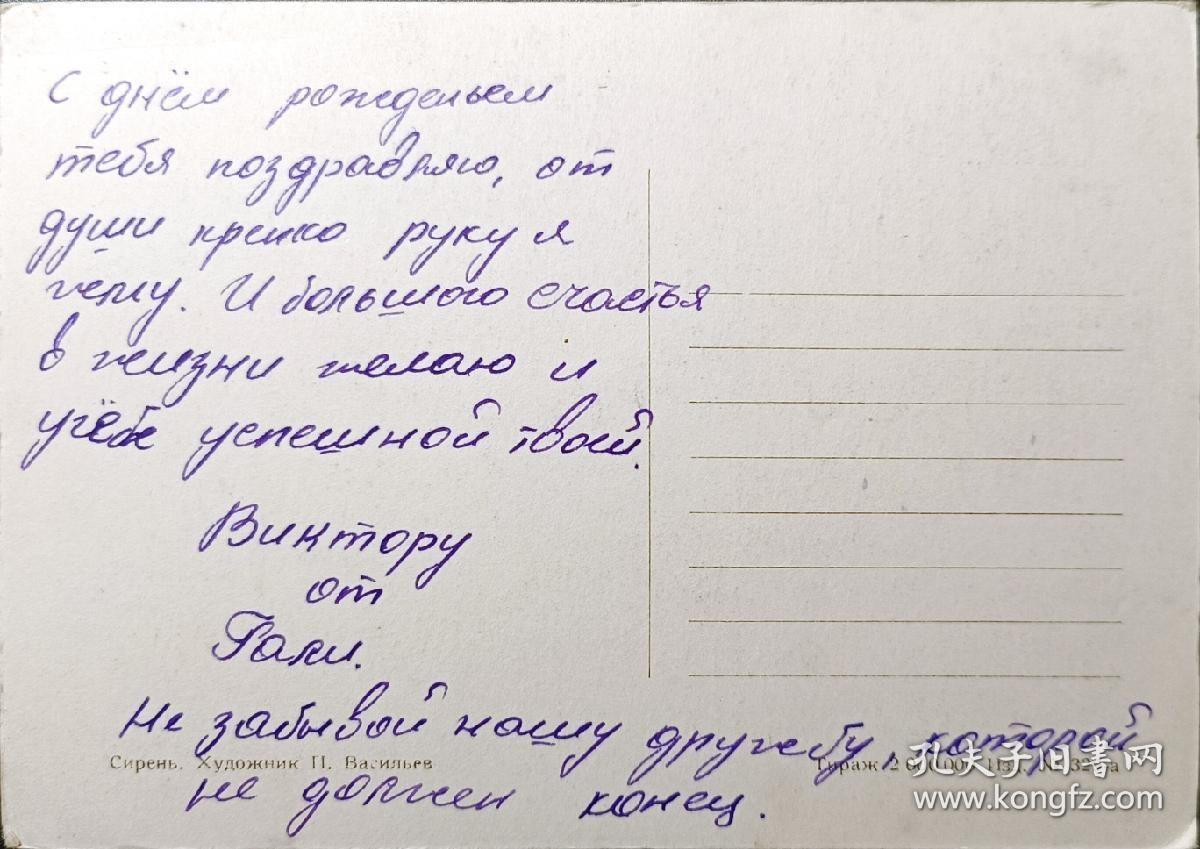 С днём рожденьем
тебя поздравляю, от
души крепко руку я
жму. И большого счастья
в жизни желаю и
учёбе успешной твоей.
Виктору
от
Гали.
Не забывай нашу дружбу, которой
Сирень. Художник П. Васильев
Тираж 2 000 000 Изд. №
не должен конец.
孔夫子旧书网
www.kongfz.com